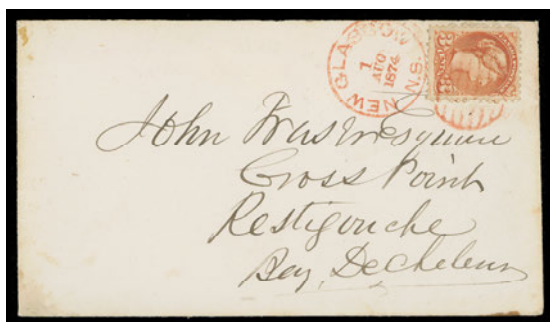 NEW GLASGOW N.S.
1
AUG
1874
John Fraser Esquire
Cross Point
Restigouche
Bay De Cheleur